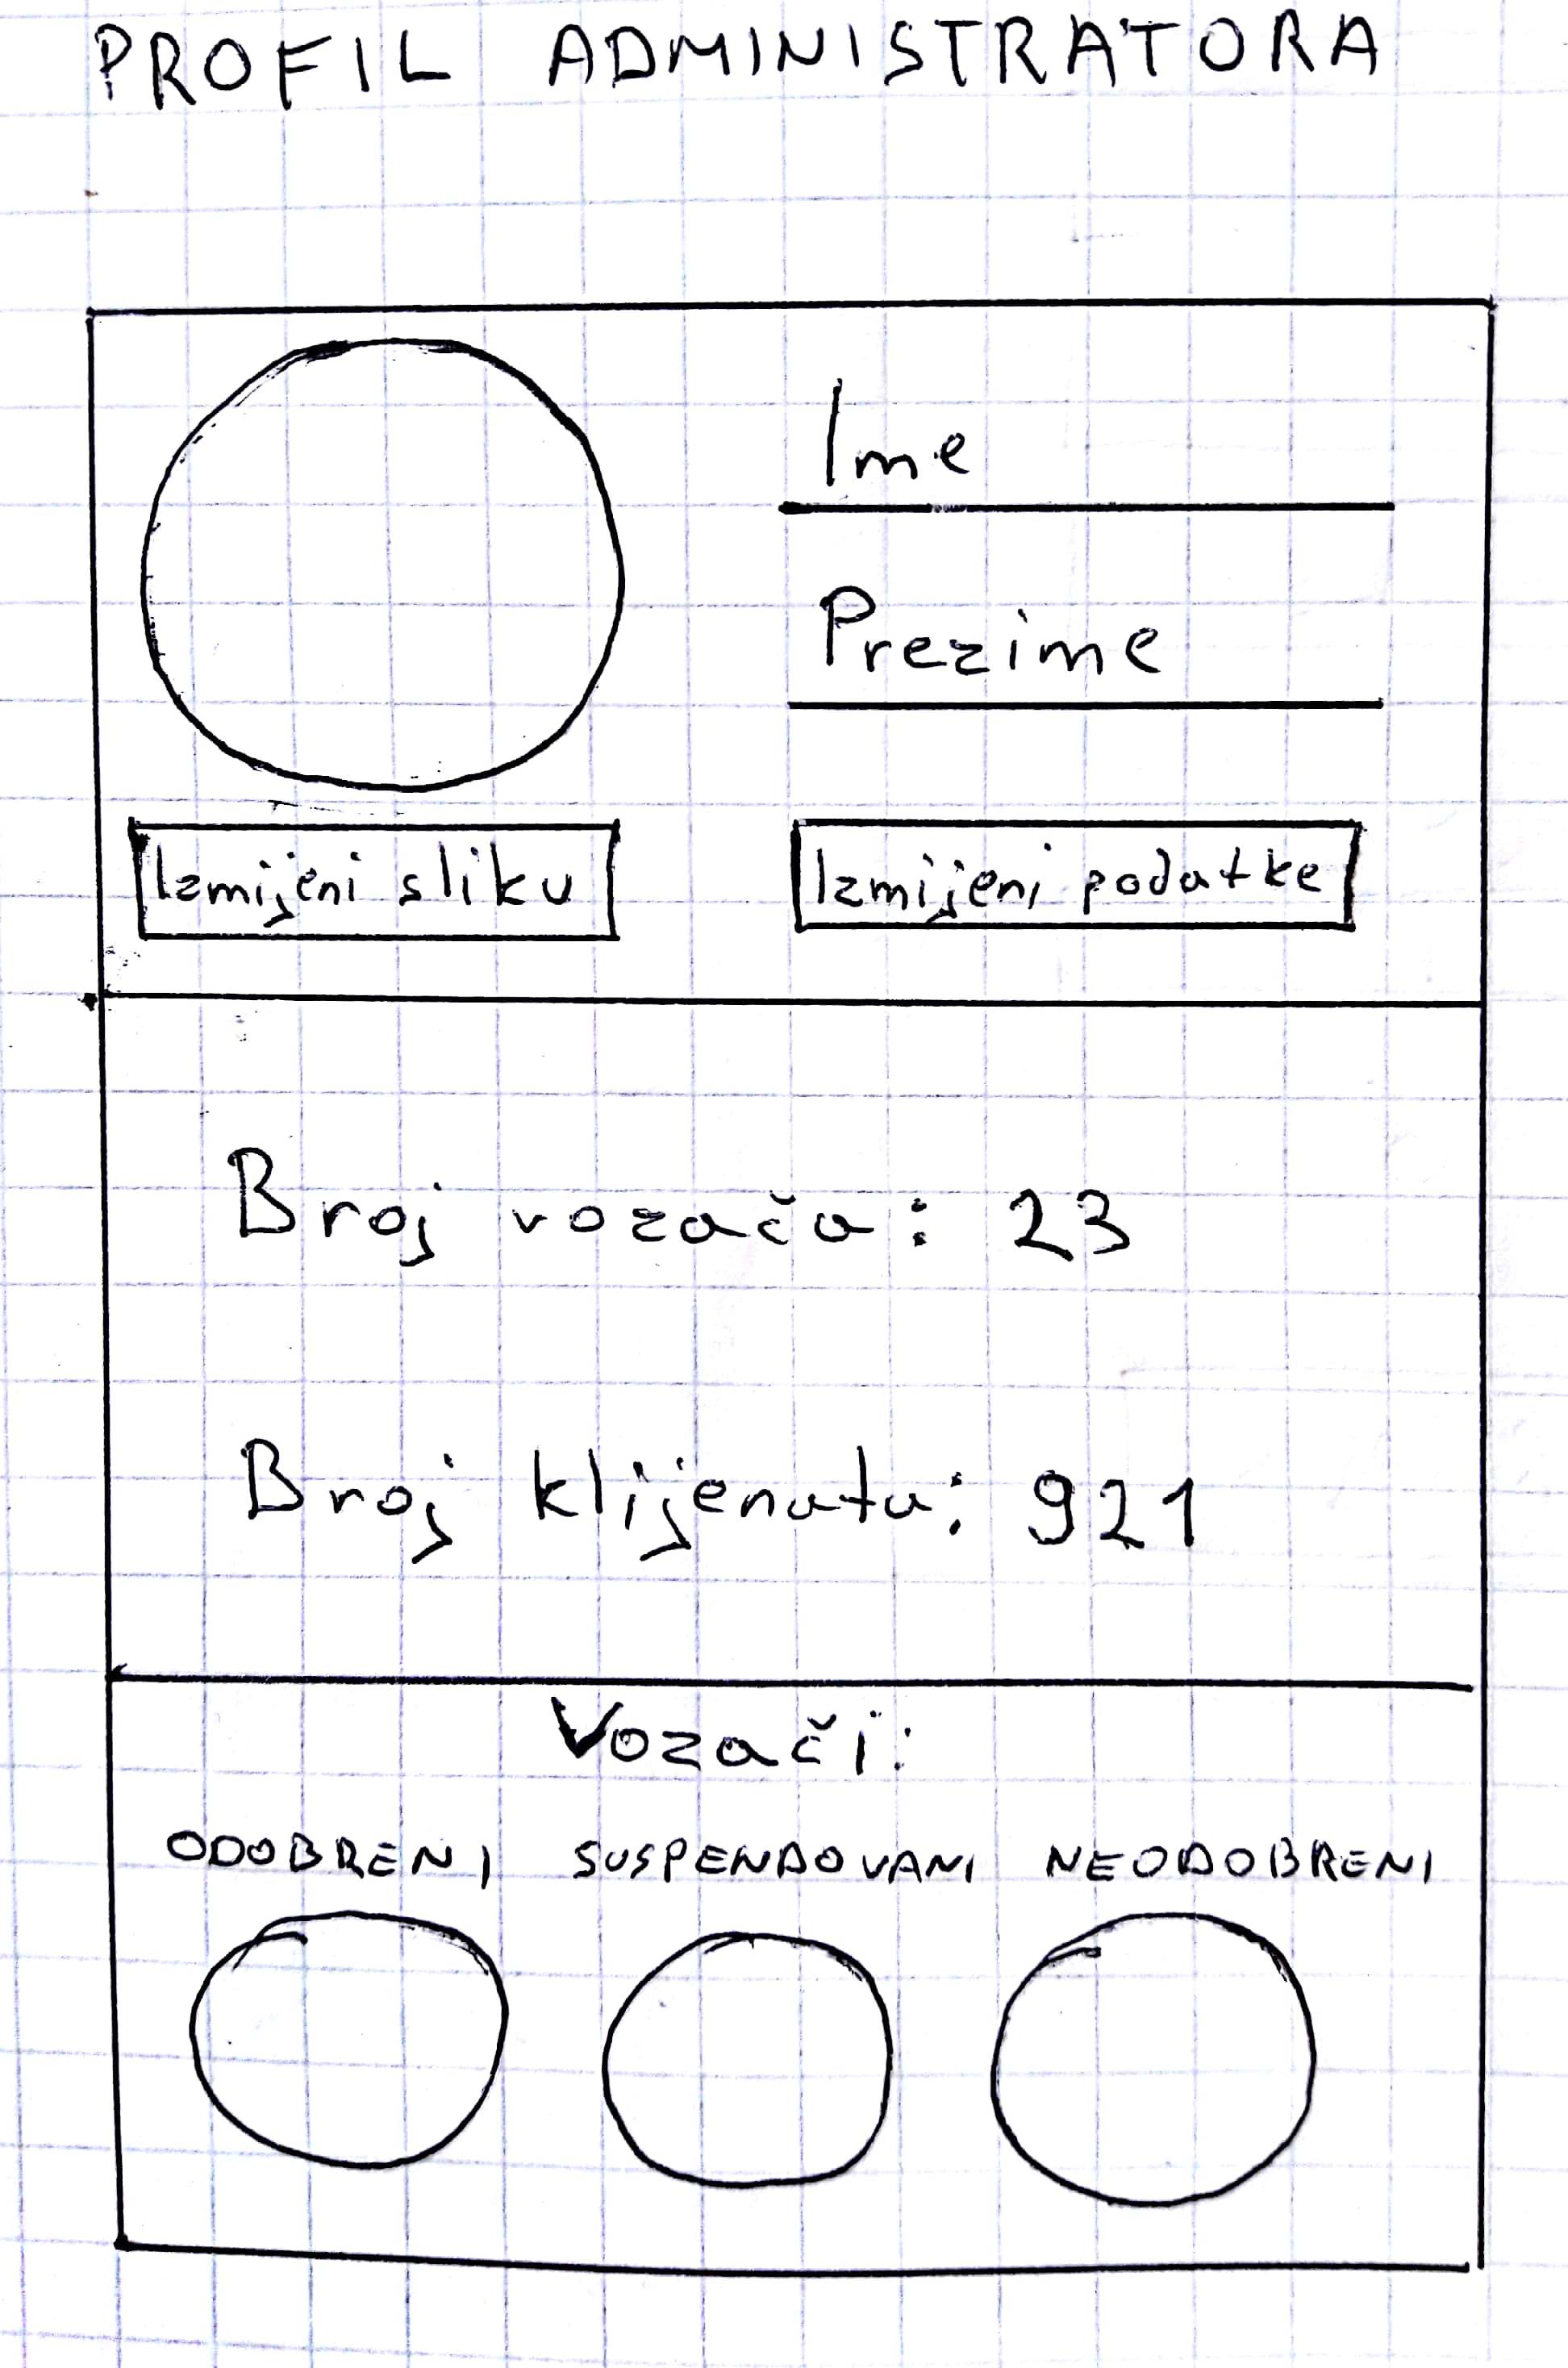 PROFIL ADMINISTRATORA
Ime
Prezime
Izmijeni sliku
Izmijeni podatke
Broj vozača: 23
Broj klijenata: 921
Vozači:
ODOBRENI SUSPENDOVANI NEODOBRENI